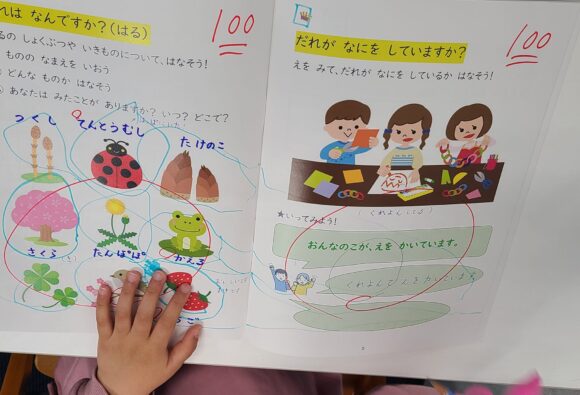 れは なんですか?(はる)
100
るの しょくぶつや いきものについて、はなそう!
ものの なまえを いおう
どんな ものか はなそう
あなたは みたことが ありますか? いつ? どこで?
つくし
てんとうむし
たけのこ
さくら
たんぽぽ
かえる
ご
だれが なにを していますか?
100
えを みて、だれが なにを しているか はなそう!
(くれよん
★いってみよう!
おんなのこが、えを かいています。
くれよんで えをかいています